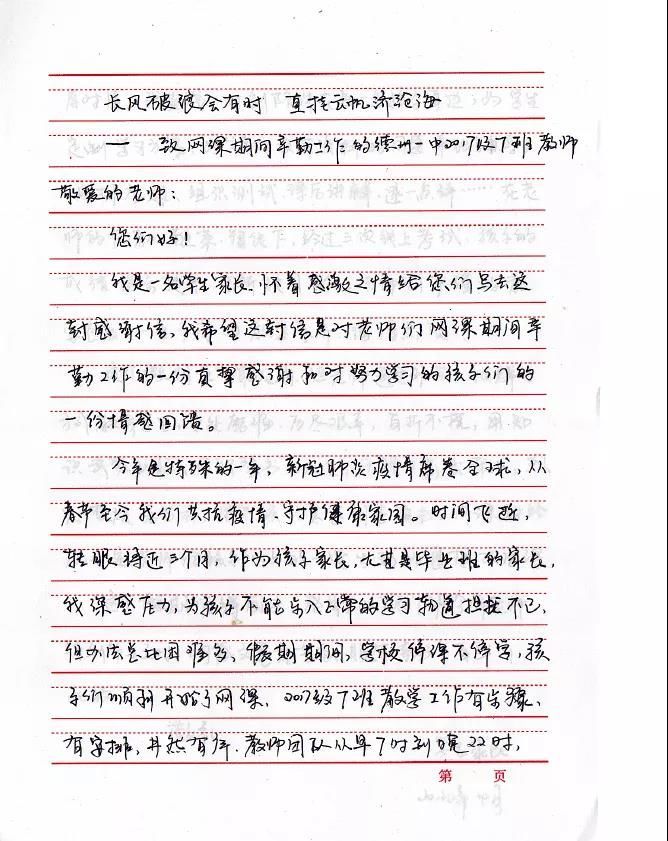 长风破浪会有时 直挂云帆济沧海
— 致网课期间辛勤工作的德州一中2017级7班教师
敬爱的老师：
您们好！
我是一名学生家长，怀着感激之情给您们写去这
封感谢信，我希望这封信是对老师们网课期间辛
勤工作的一份真挚感谢和对努力学习的孩子们的
一份情感回馈。
今年是特殊的一年，新冠肺炎疫情席卷全球，从
春节至今我们共抗疫情、守护健康家园。时间飞逝，
转眼将近三个月，作为孩子家长，尤其是毕业班的家长，
我深感压力，为孩子不能步入正常的学习轨道担忧不已，
但办法总比困难多，假期期间，学校停课不停学，孩
子们顺利开始了网课，2017级7班教学工作有步骤、
有安排，井然有序，教师团队从早7时到晚22时，
第 页